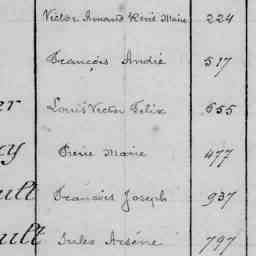 Victor Armand René Marie 224
François André 517
er Louis Victor Félix 655
cy Pierre Marie 477
ult François Joseph 937
ult Jules Arsène 797